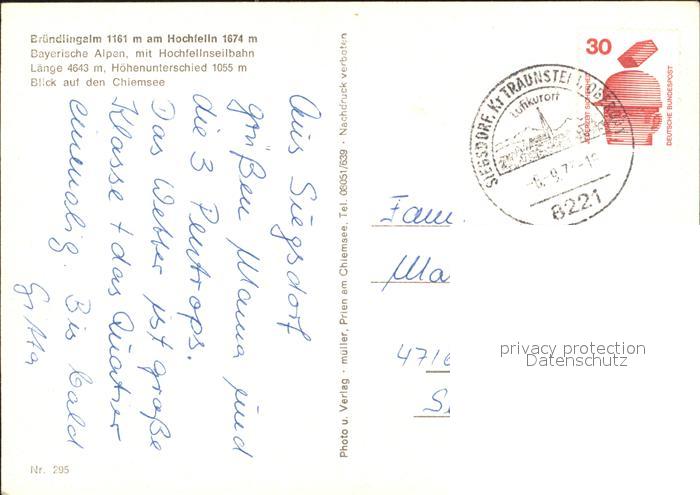 Bründlingalm 1161 m am Hochfelln 1674 m
Bayerische Alpen, mit Hochfellnseilbahn
Länge 4643 m, Höhenunterschied 1055 m
Blick auf den Chiemsee
Aus Siegsdorf
grüßen Mama und
die 3 Pentrops.
Das Wetter ist große
Klasse + das Quatier
einmalig. Bis bald
Gitta
Nr. 295
Photo u. Verlag · müller, Prien am Chiemsee, Tel. 08051/639 · Nachdruck verboten
SIEGSDORF, Kr TRAUNSTEIN
Luftkurort
8221
30
DEUTSCHE BUNDESPOST
Fam.
Ma
4716
S
privacy protection
Datenschutz